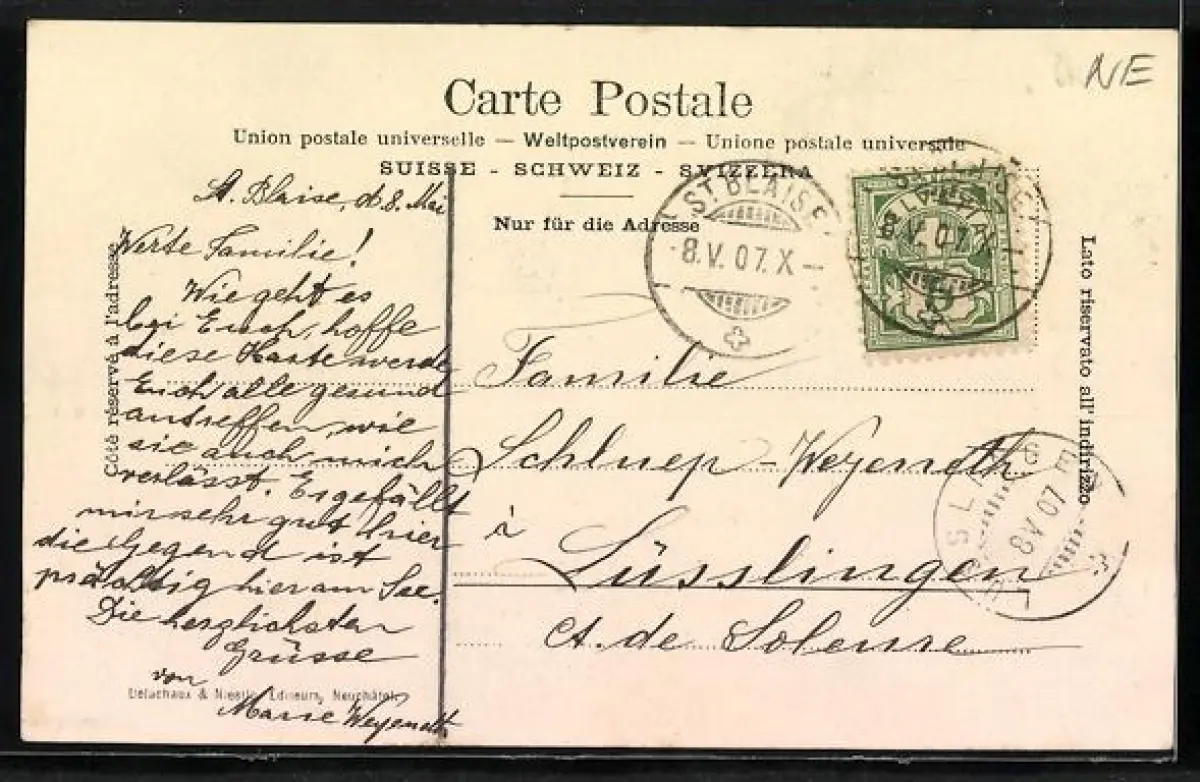 NE
Carte Postale
Union postale universelle — Weltpostverein — Unione postale universale
SUISSE - SCHWEIZ - SVIZZERA
Nur für die Adresse
Côté réservé à l'adresse
Lato riservato all' indirizzo
St. Blaise, d. 8. Mai
Werte Familie!
Wie geht es
bei Euch, hoffe
diese Karte werde
Euch alle gesund
antreffen, wie
sie auch mich
verlässt. Es gefällt
mir sehr gut hier
die Gegend ist
prächtig hier am See.
Die herzlichsten
Grüsse
von
Marie Weyeneth
Delachaux & Niestlé, Editeurs, Neuchâtel
ST. BLAISE
8.V.07.X
ST. BLAISE
8.V.07.X
Familie
Schluep-Weyeneth
à
Lüsslingen
Ct. de Soleure
8.V.07